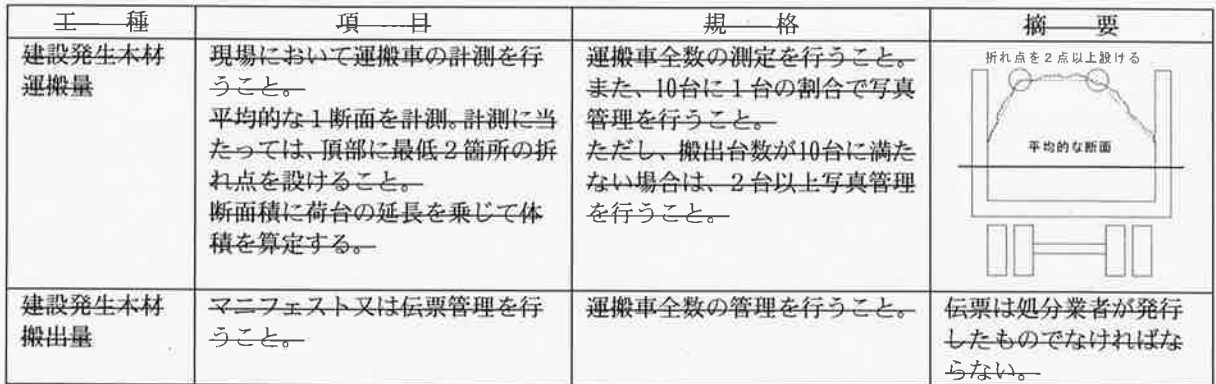 工　種
項　目
規　格
摘　要
建設発生木材
運搬量
現場において運搬車の計測を行
うこと。
平均的な１断面を計測。計測に当
たっては、頂部に最低２箇所の折
れ点を設けること。
断面積に荷台の延長を乗じて体
積を算定する。
運搬車全数の測定を行うこと。
また、10台に１台の割合で写真
管理を行うこと。
ただし、搬出台数が10台に満た
ない場合は、２台以上写真管理
を行うこと。
折れ点を２点以上設ける
平均的な断面
建設発生木材
搬出量
マニフェスト又は伝票管理を行
うこと。
運搬車全数の管理を行うこと。
伝票は処分業者が発行
したものでなければな
らない。